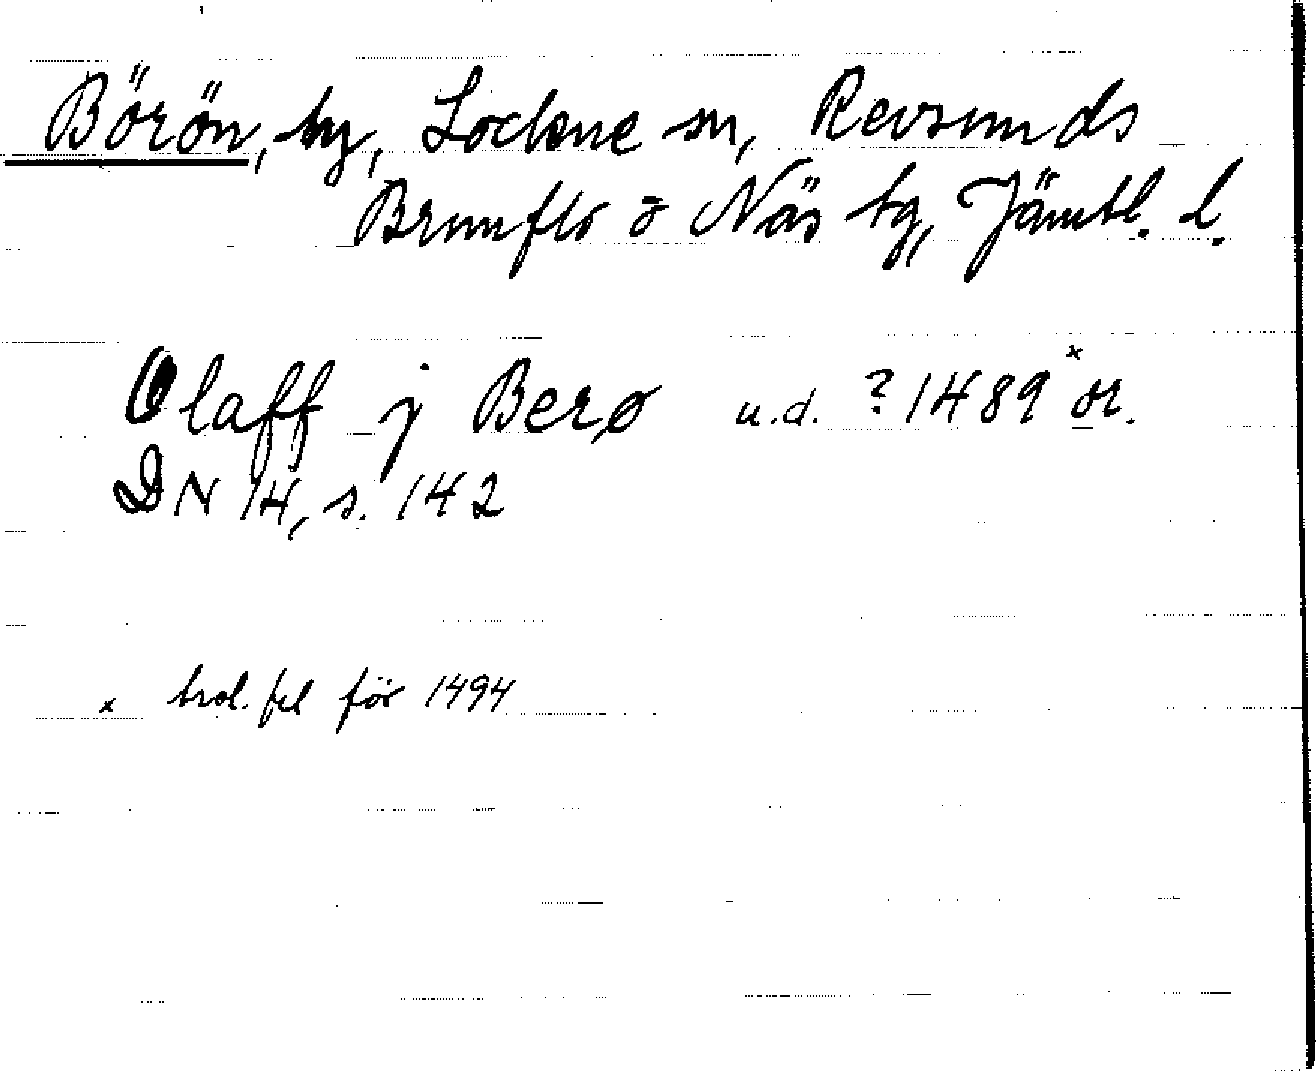 Börön, by, Lockne sn, Revsunds
Brunflo o Näs tg, Jämtl. l.
Olaff j Berø u.d. ?1489ˣ or.
DN 14, s. 142
x trol. fel för 1494